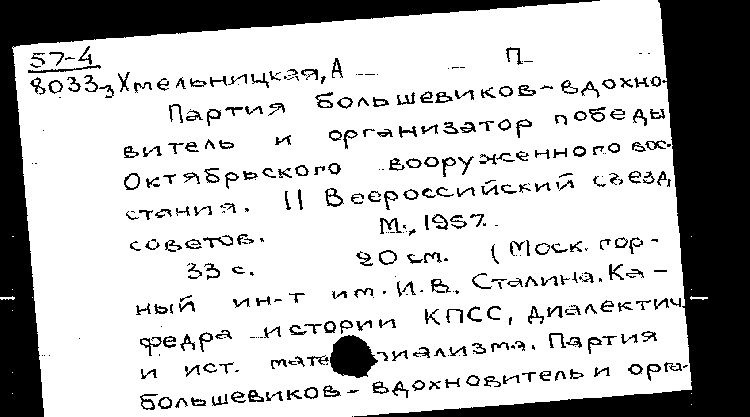 57-4
8033-3 Хмельницкая, А — — П
Партия большевиков-вдохно-
витель и организатор победы
Октябрьского вооруженного вос-
стания. II Всероссийский съезд
советов. М., 1957.
33 с. 20 см. (Моск. гор-
ный ин-т им. И.В. Сталина. Ка-
федра истории КПСС, диалектич.
и ист. материализма. Партия
большевиков - вдохновитель и орга-